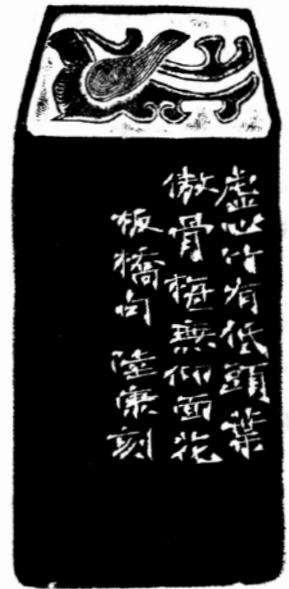 虛心竹有低頭葉
傲骨梅無仰面花
板橋句 陸康刻